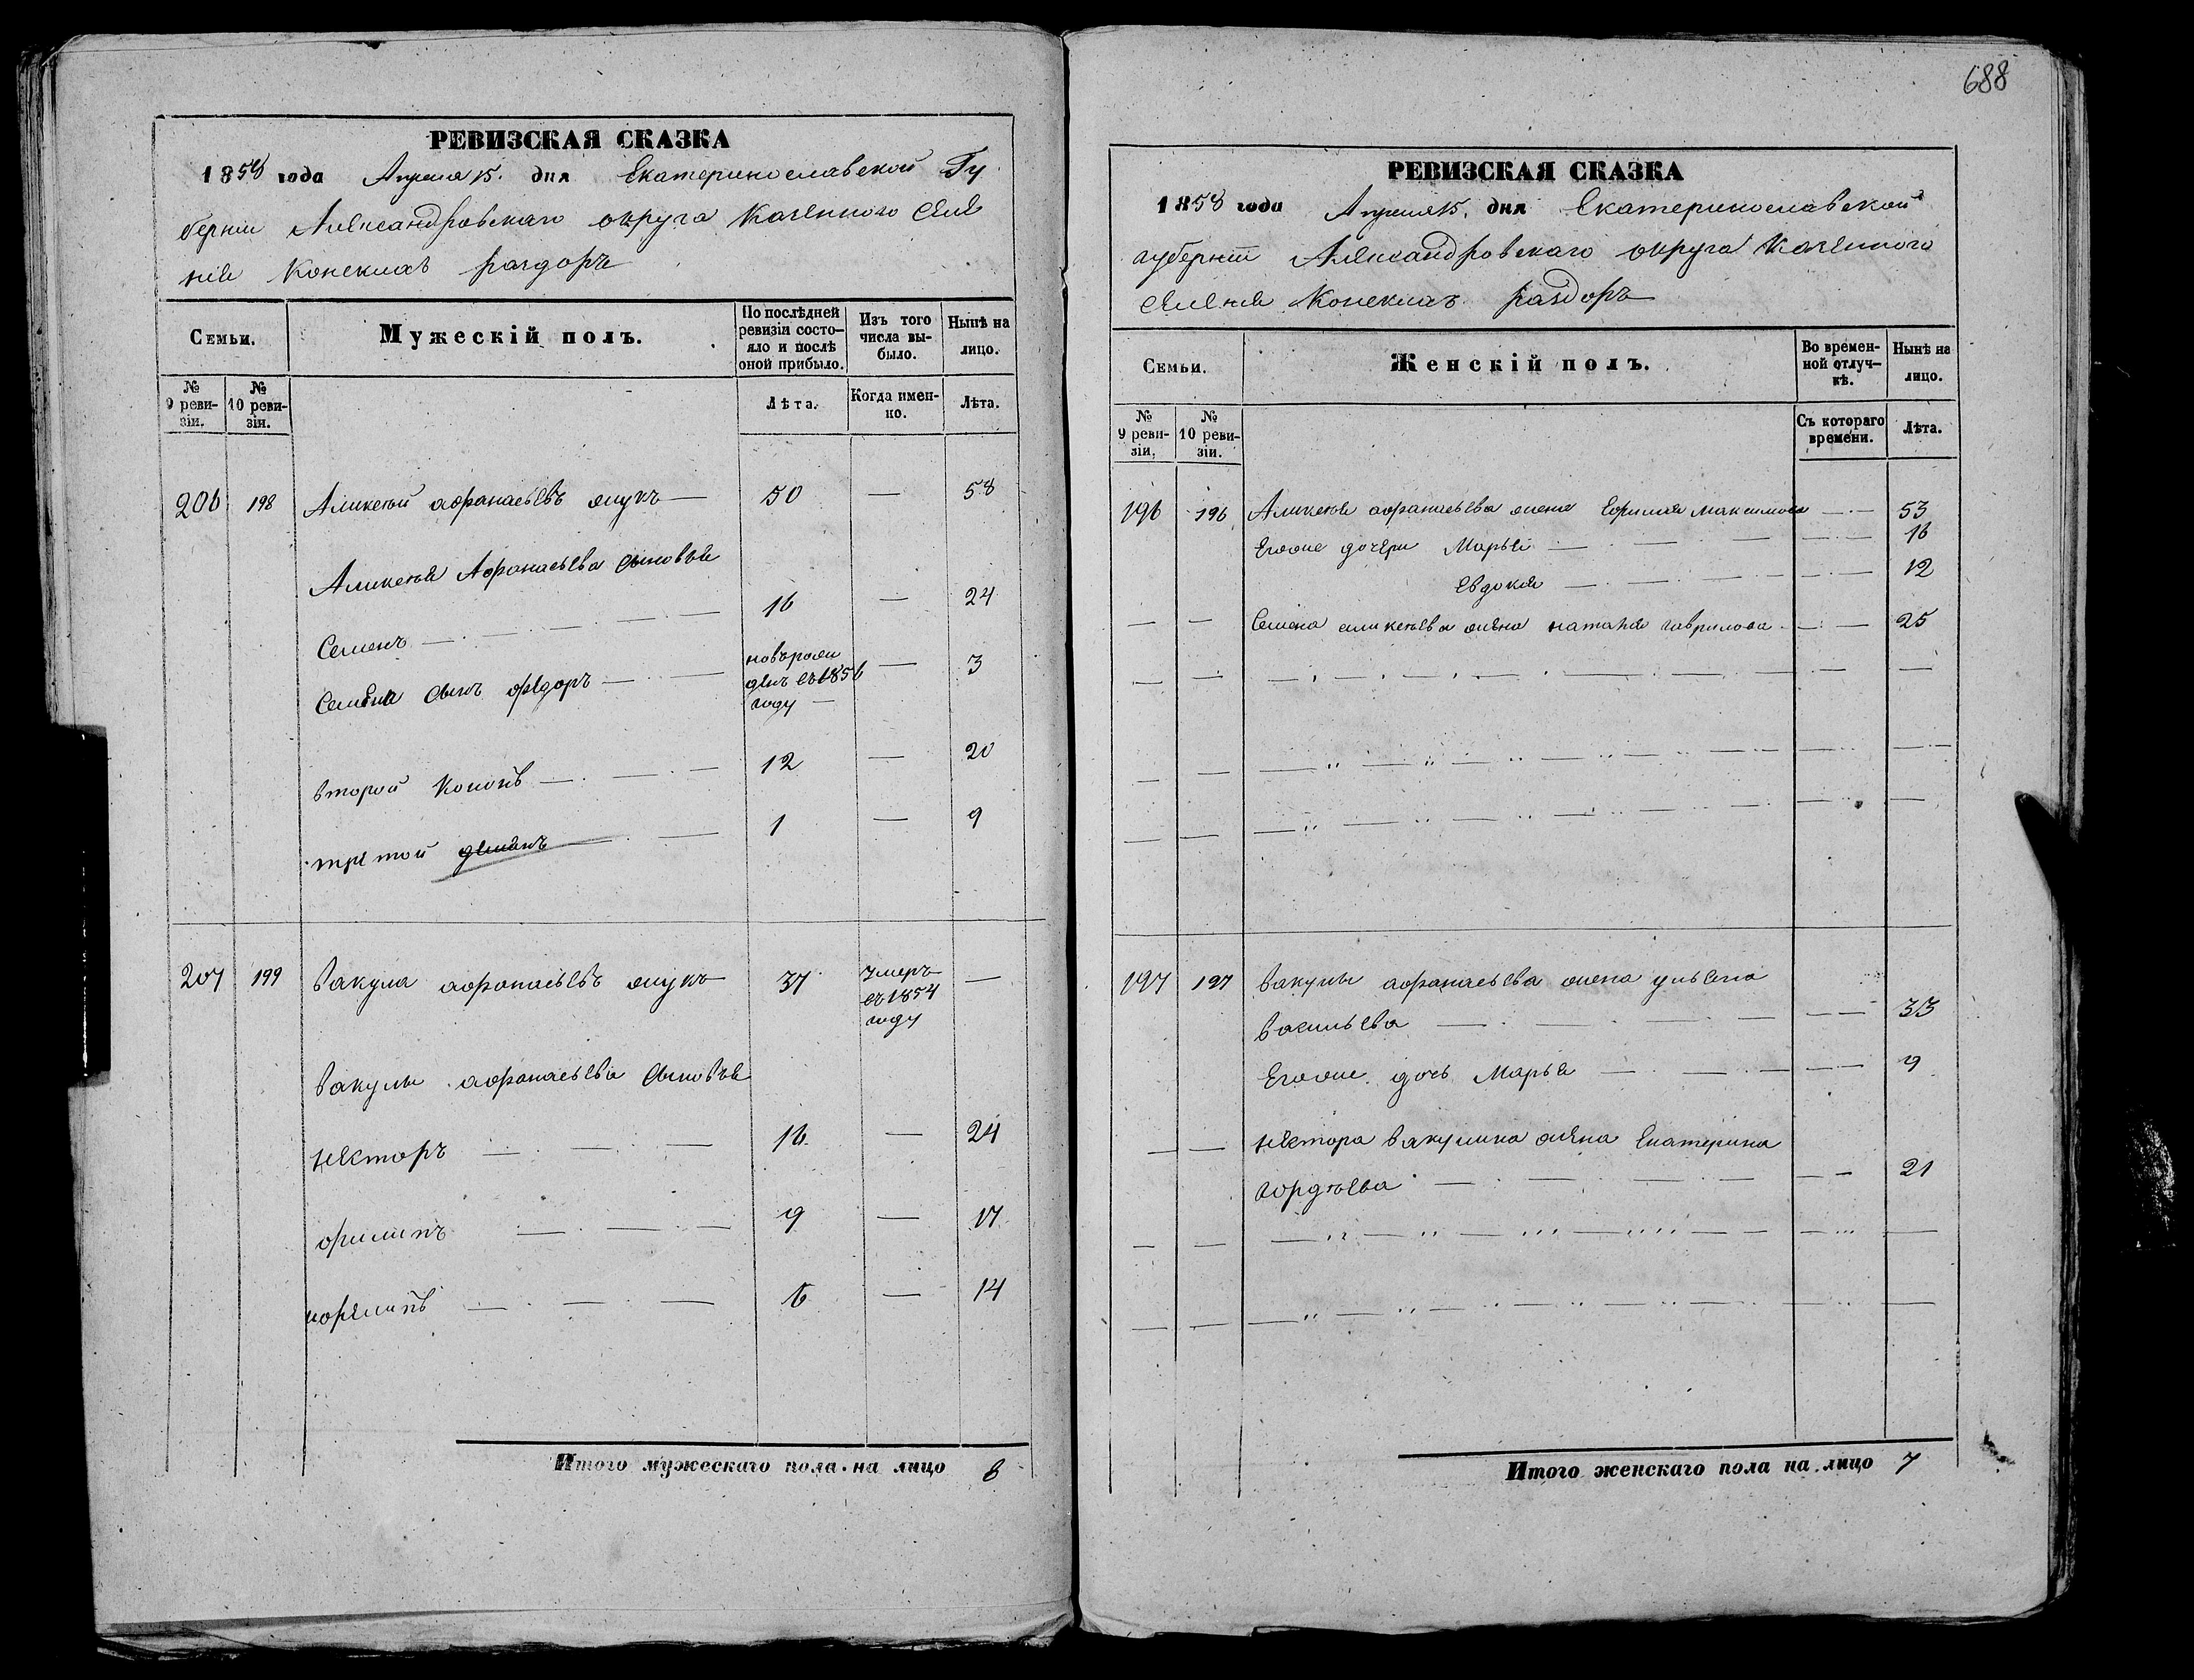 688
РЕВИЗСКАЯ СКАЗКА
1858 года Апреля 15. дня Екатеринославской Гу
берніи Александровскаго округа Казенного Селе
нія Конскихъ раздоръ
Семьи.
Мужескій полъ.
По послѣдней ревизіи состояло и послѣ оной прибыло.
Изъ того числа выбыло.
Нынѣ на лицо.
№ 9 ревизіи.
№ 10 ревизіи.
Лѣта.
Когда именно.
Лѣта.
206 198 Аликсѣй афанасьевъ 50 — 58
Аликсѣя Афанасьева сыновья
Семенъ 16 — 24
Семена сынъ федоръ новърожденъ въ 1856 году — 3
второй Кононъ 12 — 20
третой демянъ 1 — 9
207 199 Вакула афанасьевъ 37 умеръ въ 1854 году —
Вакулы афанасьева сыновья
Нѣкторъ 16 — 24
филипъ 9 — 17
6 — 14
Итого мужескаго пола на лицо 8
РЕВИЗСКАЯ СКАЗКА
1858 года Апреля 15. дня Екатеринославской
губерніи Александровскаго округа Казенного
селенія Конскихъ раздоръ
Семьи.
Женскій полъ.
Во временной отлучкѣ.
Нынѣ на лицо.
№ 9 ревизіи.
№ 10 ревизіи.
Съ котораго времени.
Лѣта.
196 196 Аликсѣя афанасьева жена Максимова — 53
Егоже дочери Марья — 16
Евдокія — 12
Семена аликсѣева жена наталія гаврилова — 25
197 197 Вакулы афанасьева жена ульяна
Васильева — 33
Егоже дочь Марья — 9
Нѣктора Вакулина жена Екатерина
гордѣева — 21
Итого женскаго пола на лицо 7